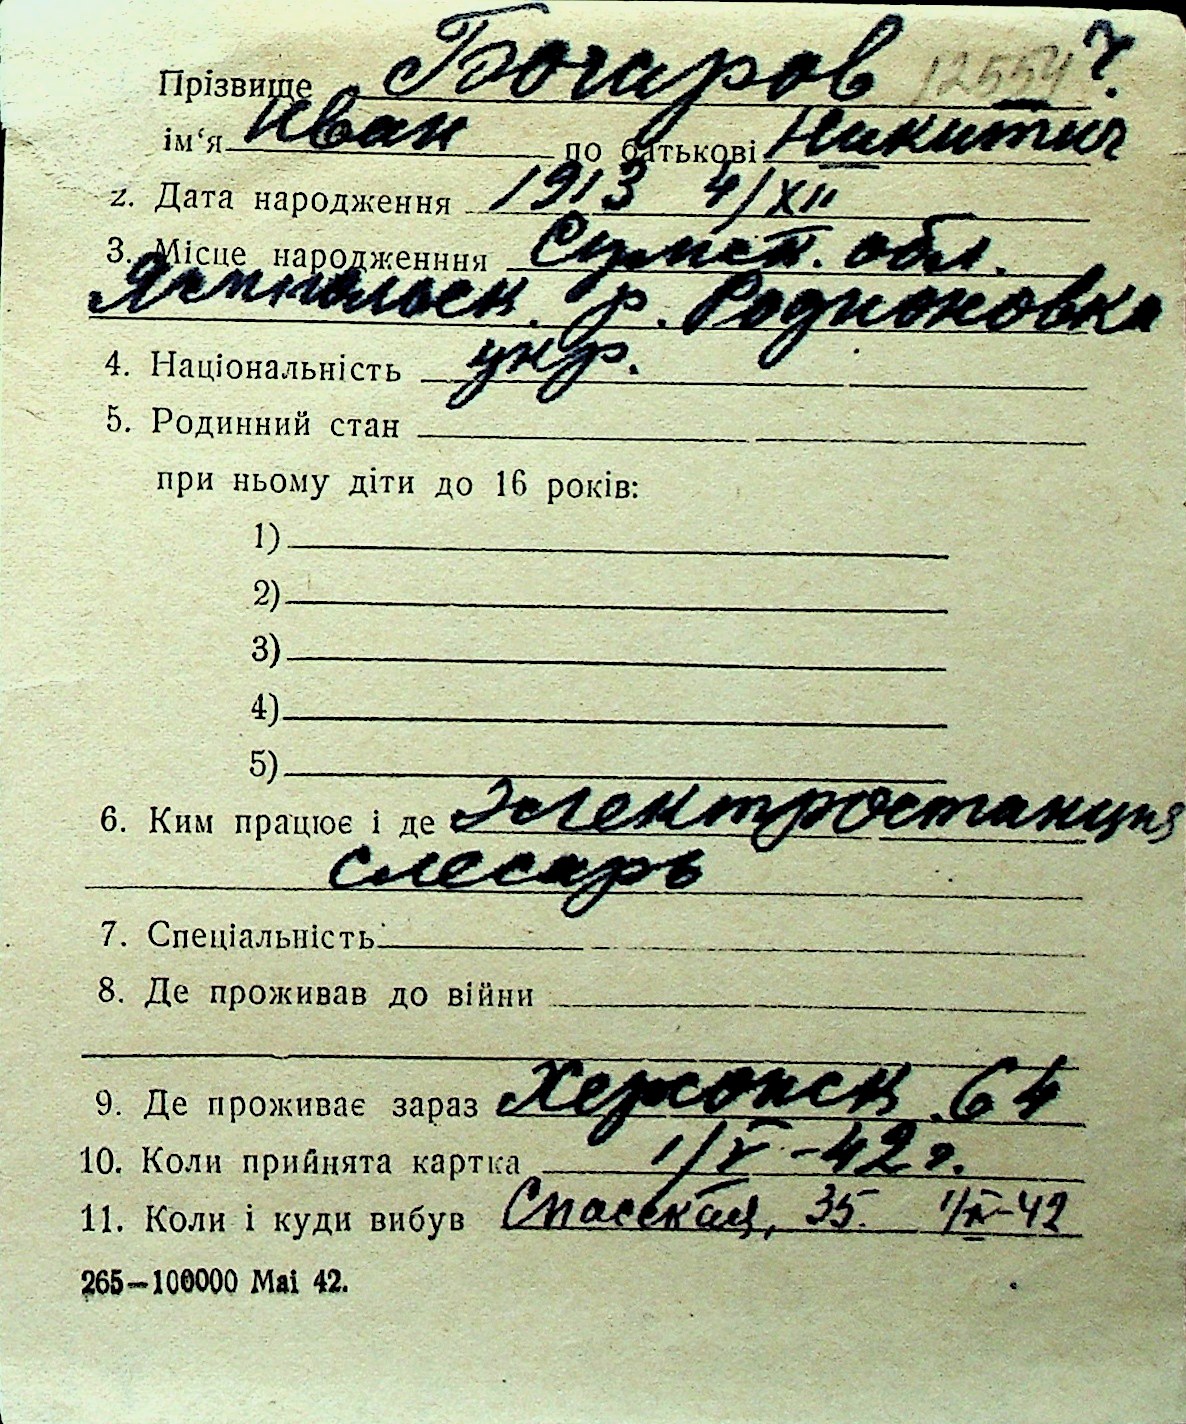 Прізвище Бочаров 12554 ?
ім'я Иван по батькові Никитич
2. Дата народження 1913 4/XII
3. Місце народженння Сумск. обл.
Ямпольск. р. Родионовка
4. Національність укр.
5. Родинний стан
при ньому діти до 16 років:
1)
2)
3)
4)
5)
6. Ким працює і де Электростанция
слесарь
7. Спеціальність
8. Де проживав до війни
9. Де проживає зараз Херсонск 64
10. Коли прийнята картка 1/V-42 г.
11. Коли і куди вибув Спасская, 35. 1/X-42
265—100000 Mai 42.